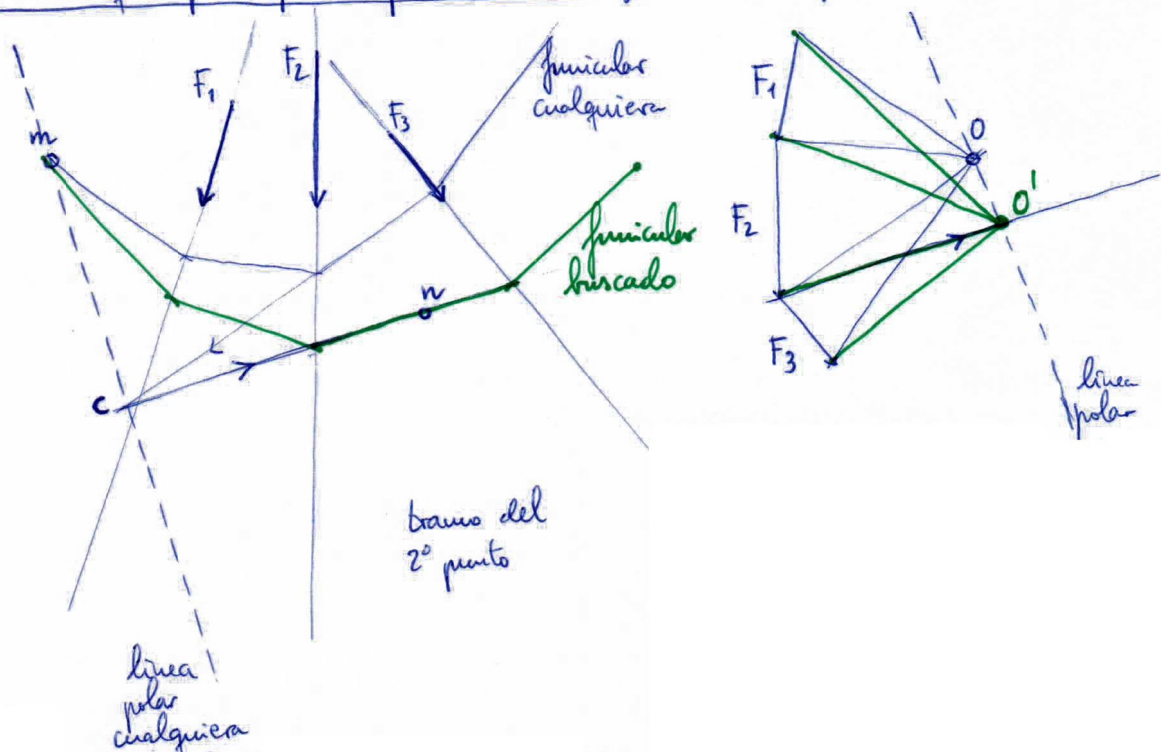 F₁
F₂
F₃
funicular
cualquiera
m
funicular
buscado
n
c
tramo del
2º punto
línea
polar
cualquiera
F₁
O
O'
F₂
F₃
línea
polar